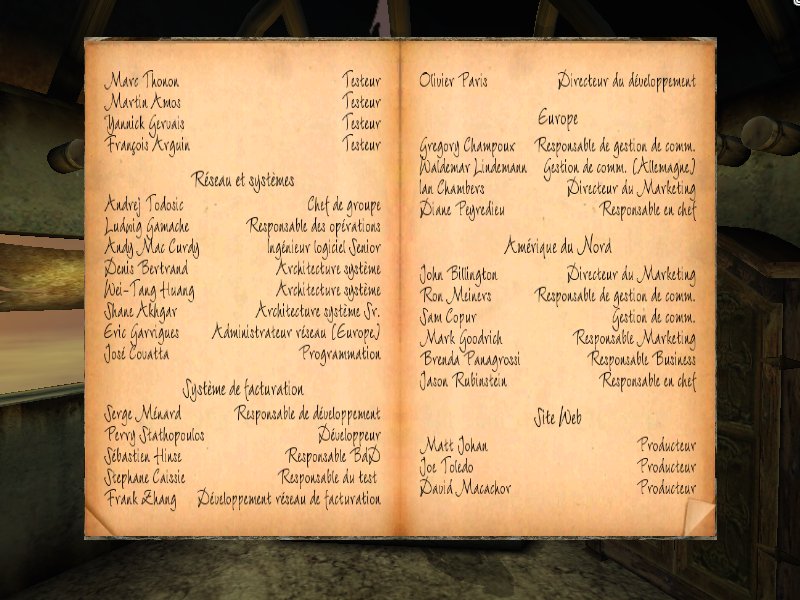 Marc Thonon Testeur
Martin Amos Testeur
Yannick Gervais Testeur
François Arguin Testeur
Réseau et systèmes
Andrej Todosic Chef de groupe
Ludwig Gamache Responsable des opérations
Andy Mac Curdy Ingénieur logiciel Senior
Denis Bertrand Architecture système
Wei-Tang Huang Architecture système
Shane Akhgar Architecture système Sr.
Eric Garrigues Administrateur réseau (Europe)
José Couatta Programmation
Système de facturation
Serge Ménard Responsable de développement
Perry Stathopoulos Développeur
Sébastien Hinse Responsable BdD
Stephane Caissie Responsable du test
Frank Zhang Développement réseau de facturation
Olivier Paris Directeur du développement
Europe
Gregory Champoux Responsable de gestion de comm.
Waldemar Lindemann Gestion de comm. (Allemagne)
Ian Chambers Directeur du Marketing
Diane Peyredieu Responsable en chef
Amérique du Nord
John Billington Directeur du Marketing
Ron Meiners Responsable de gestion de comm.
Sam Copur Gestion de comm.
Mark Goodrich Responsable Marketing
Brenda Panagrossi Responsable Business
Jason Rubinstein Responsable en chef
Site Web
Matt Johan Producteur
Joe Toledo Producteur
David Macachor Producteur